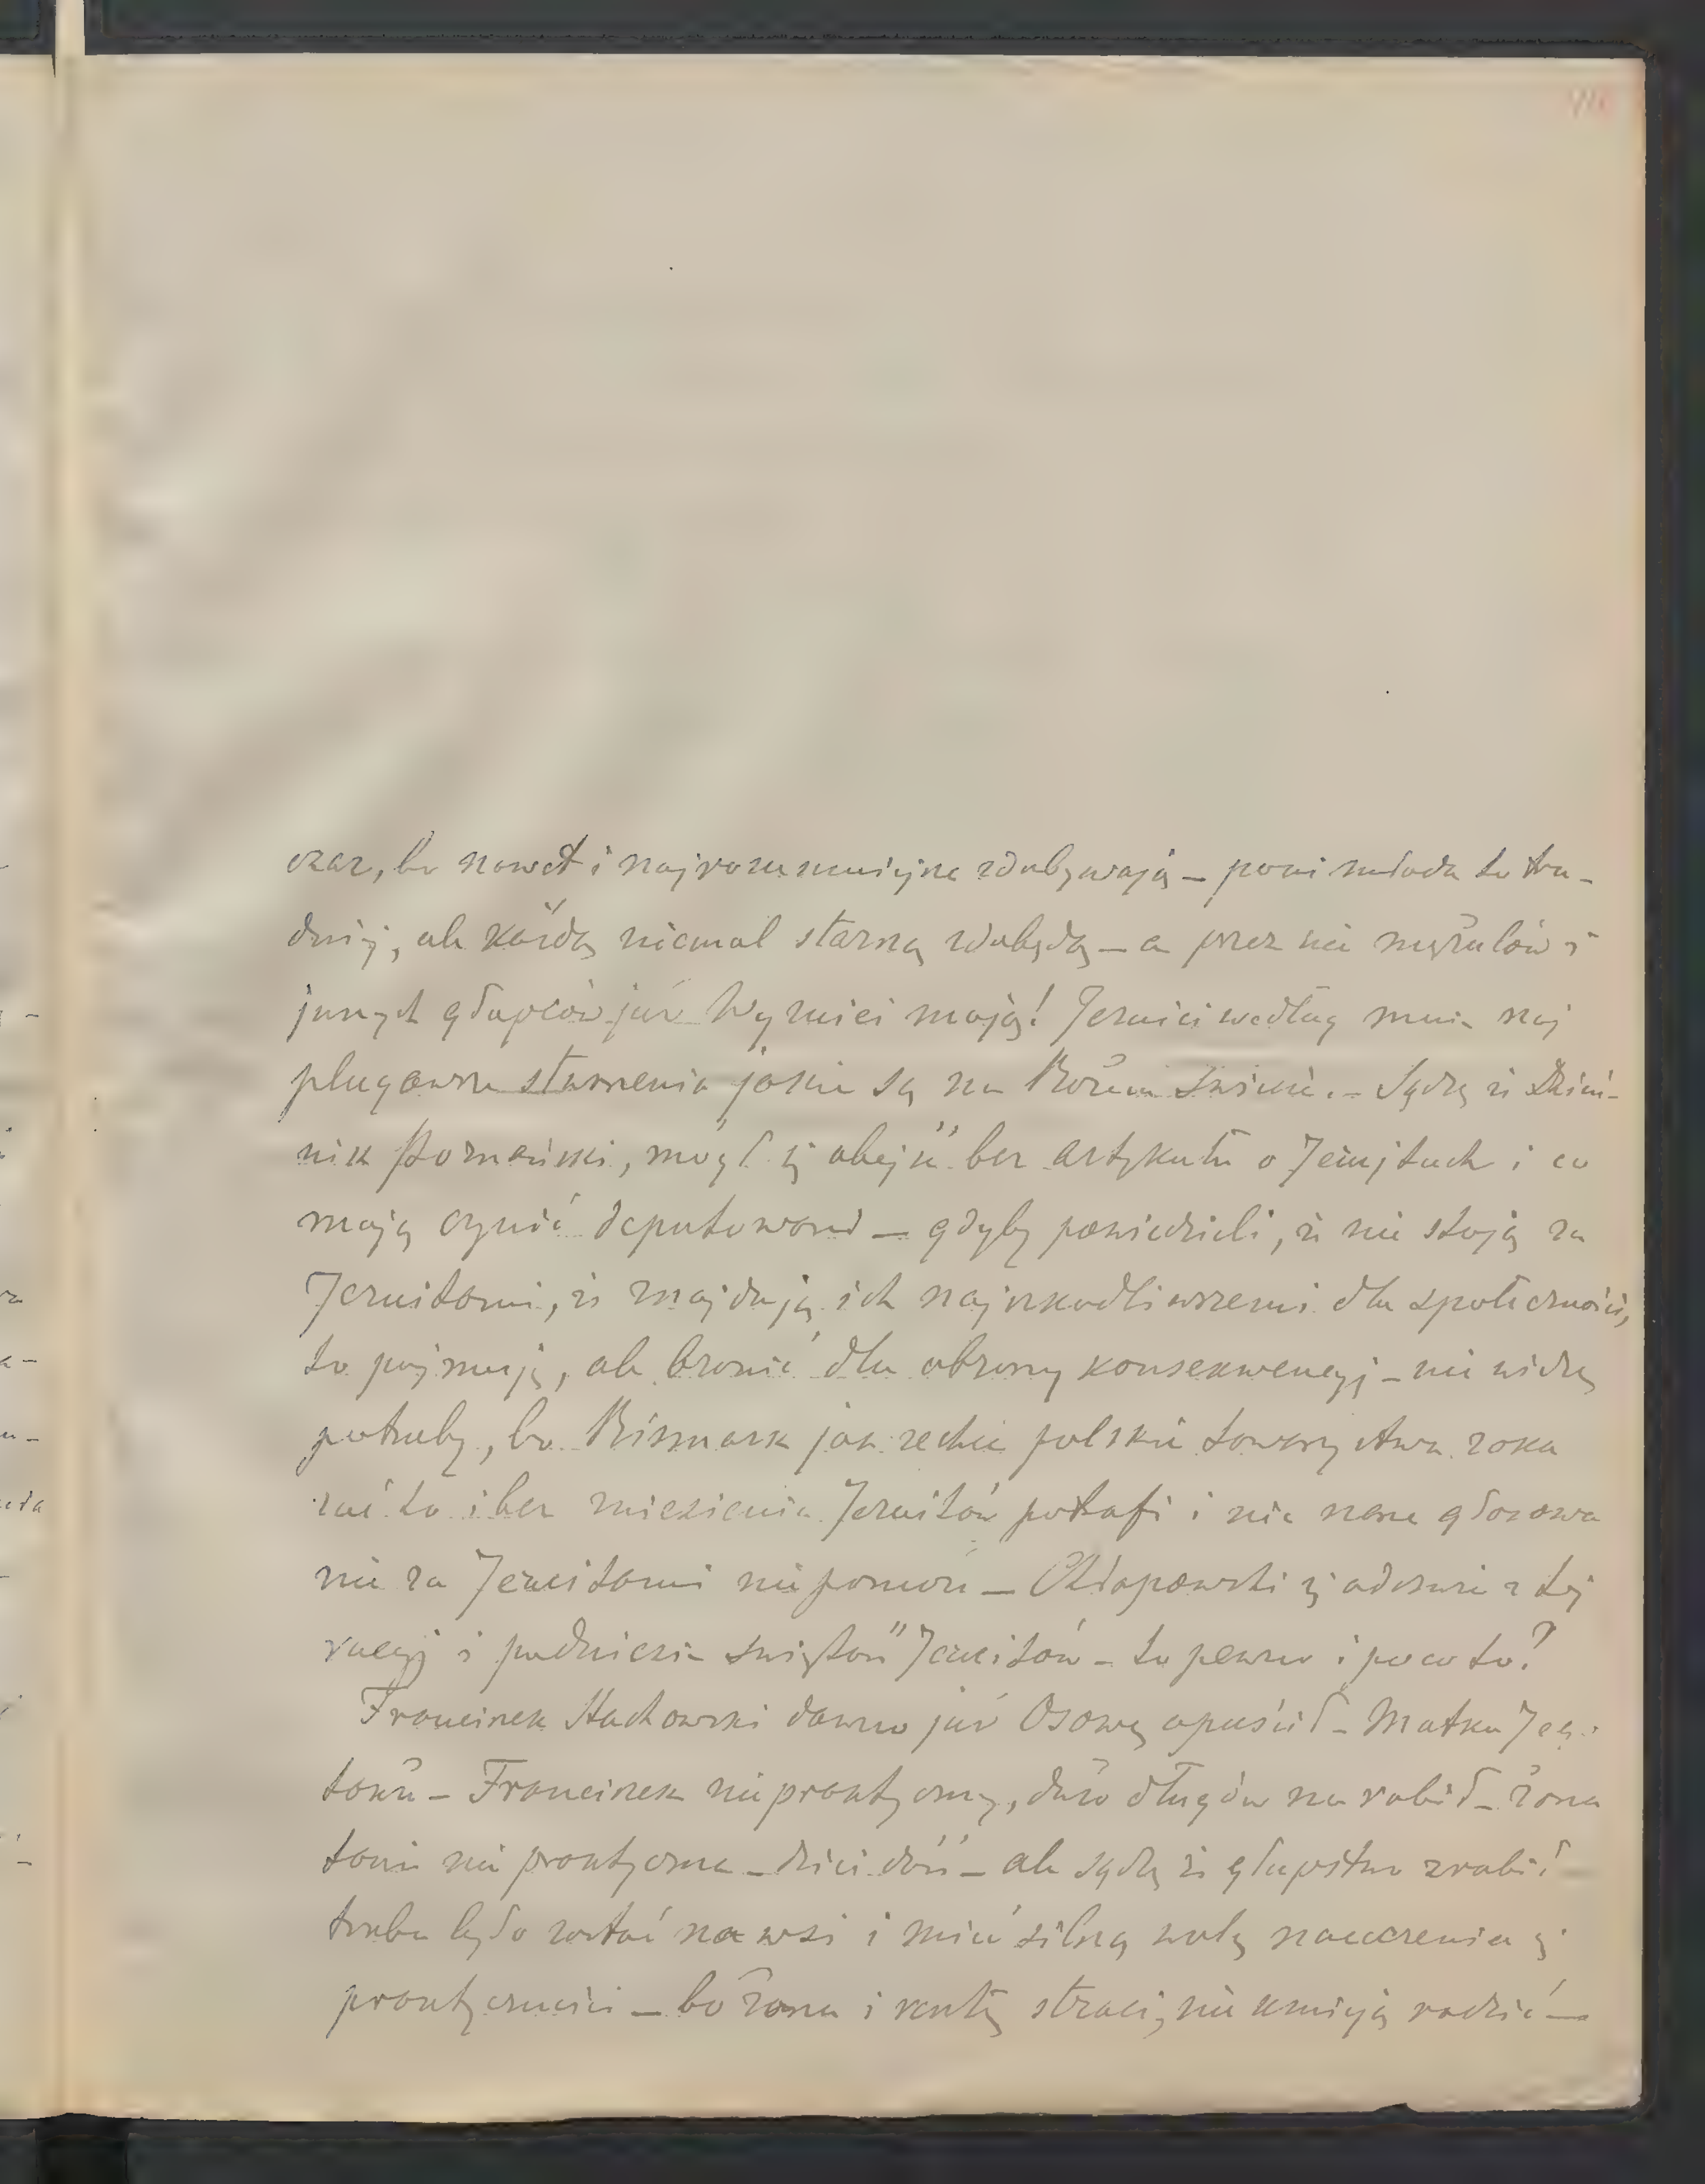 czar, bo nawet i najrozumniejsze zdobywają – póki młoda to tru-
dniej, ale każdą niemal starszą zdobędą – a przez nie mężulów i
innych głupców już w ręku mają! Jezuici według mnie naj
plugawsze stworzenia jakie są na Bożem świecie. – Sądzę iż Dzien-
nik Poznański, mógł się obejść bez artykułu o Jezuitach i co
mają czynić deputowani – gdyby powiedzieli, iż nie stoją za
Jezuitami, iż znajdują ich najszkodliwszemi dla społeczności,
to pojmuję, ale bronić dla obrony konsekwencyj – nie widzę
potrzeby, bo Bismark jak zechce polskie towarzystwa zaka
zać to i bez Jezuitów potrafi i nic nasze głosowa
nie za Jezuitami nie pomoże – Chłapowski się odezwie z tej
racyj i podniesie świętość Jezuitów – to pewno i po co to?
Franciszek Stachowski dawno już Osowę opuścił – Matka Jego
także – Franciszek niepraktyczny, dużo długów narobił – żona
także nie praktyczna – dzieci dość – ale sądzę iż głupstwo zrobił
trzeba było zostać na wsi i mieć silną wolę nauczenia się
praktyczności – bo żona i resztę straci, nie umieją radzić –